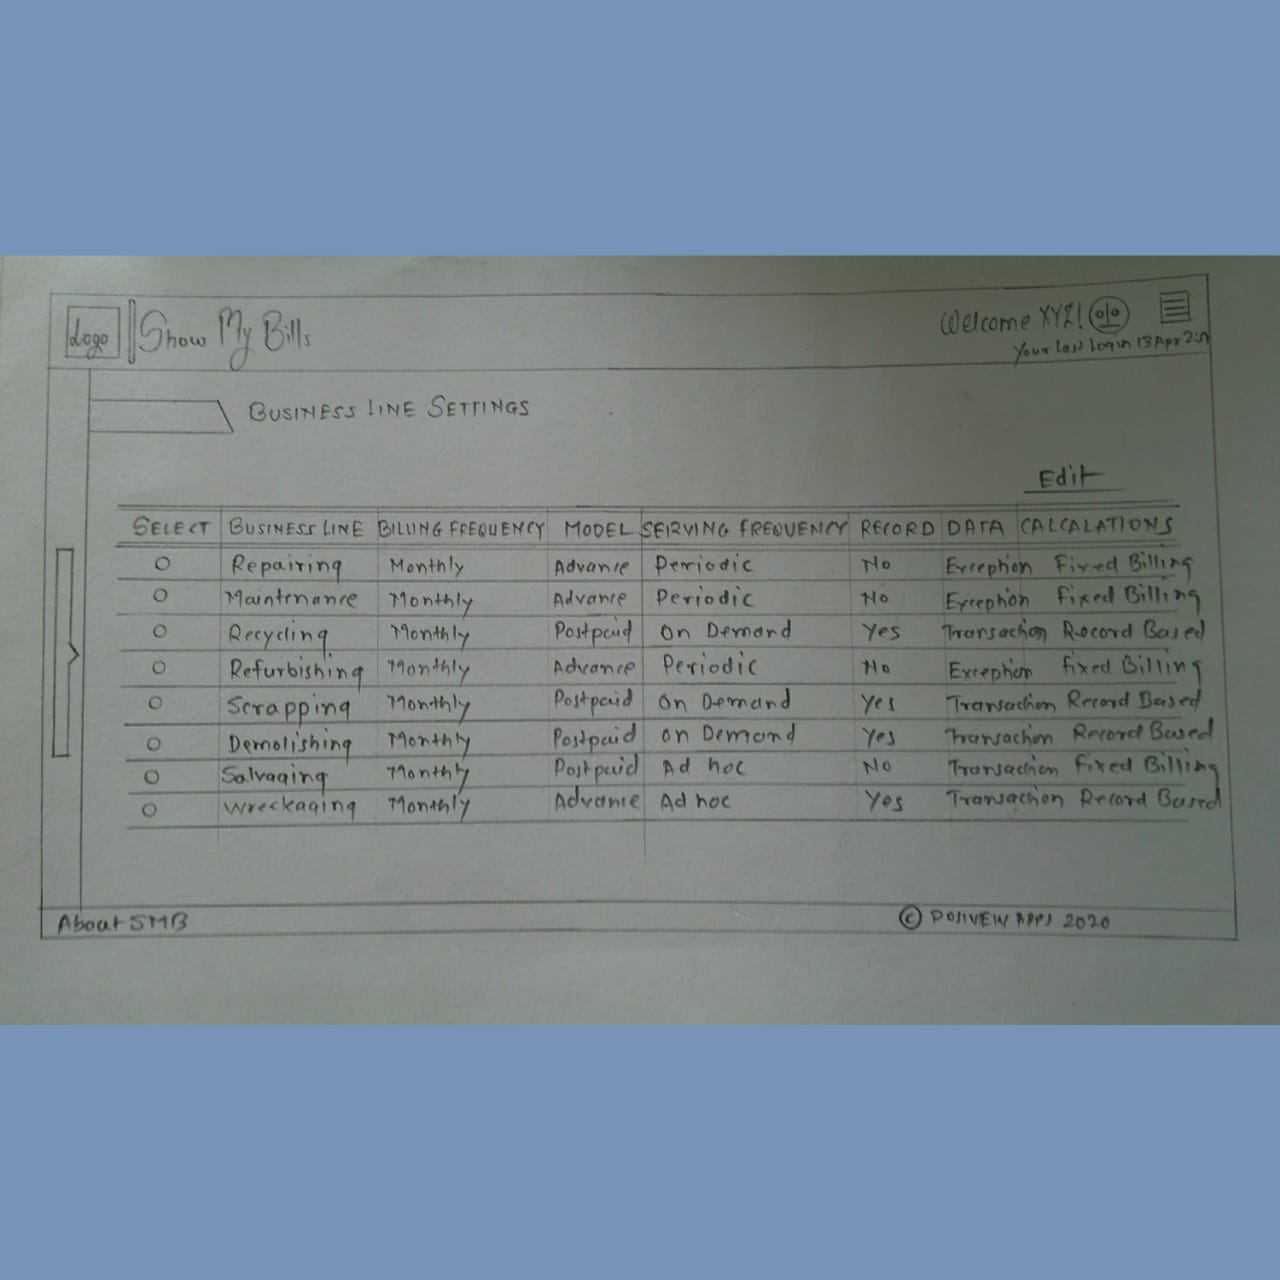 Logo Show My Bills Welcome XYZ!
Your last login 13 Apr 20
BUSINESS LINE SETTINGS
Edit
SELECT BUSINESS LINE BILLING FREQUENCY MODEL SEIRVING FREQUENCY RECORD DATA CALCALATIONS
Repairing Monthly Advance Periodic No Exception Fixed Billing
Maintenance Monthly Advance Periodic No Exception Fixed Billing
Recycling Monthly Postpaid On Demand Yes Transaction Record Based
Refurbishing Monthly Advance Periodic No Exception Fixed Billing
Scrapping Monthly Postpaid On Demand Yes Transaction Record Based
Demolishing Monthly Postpaid On Demand Yes Transaction Record Based
Salvaging Monthly Postpaid Ad hoc No Transaction Fixed Billing
Wreckaging Monthly Advance Ad hoc Yes Transaction Record Based
About SMB © POSIVIEW APPS 2020